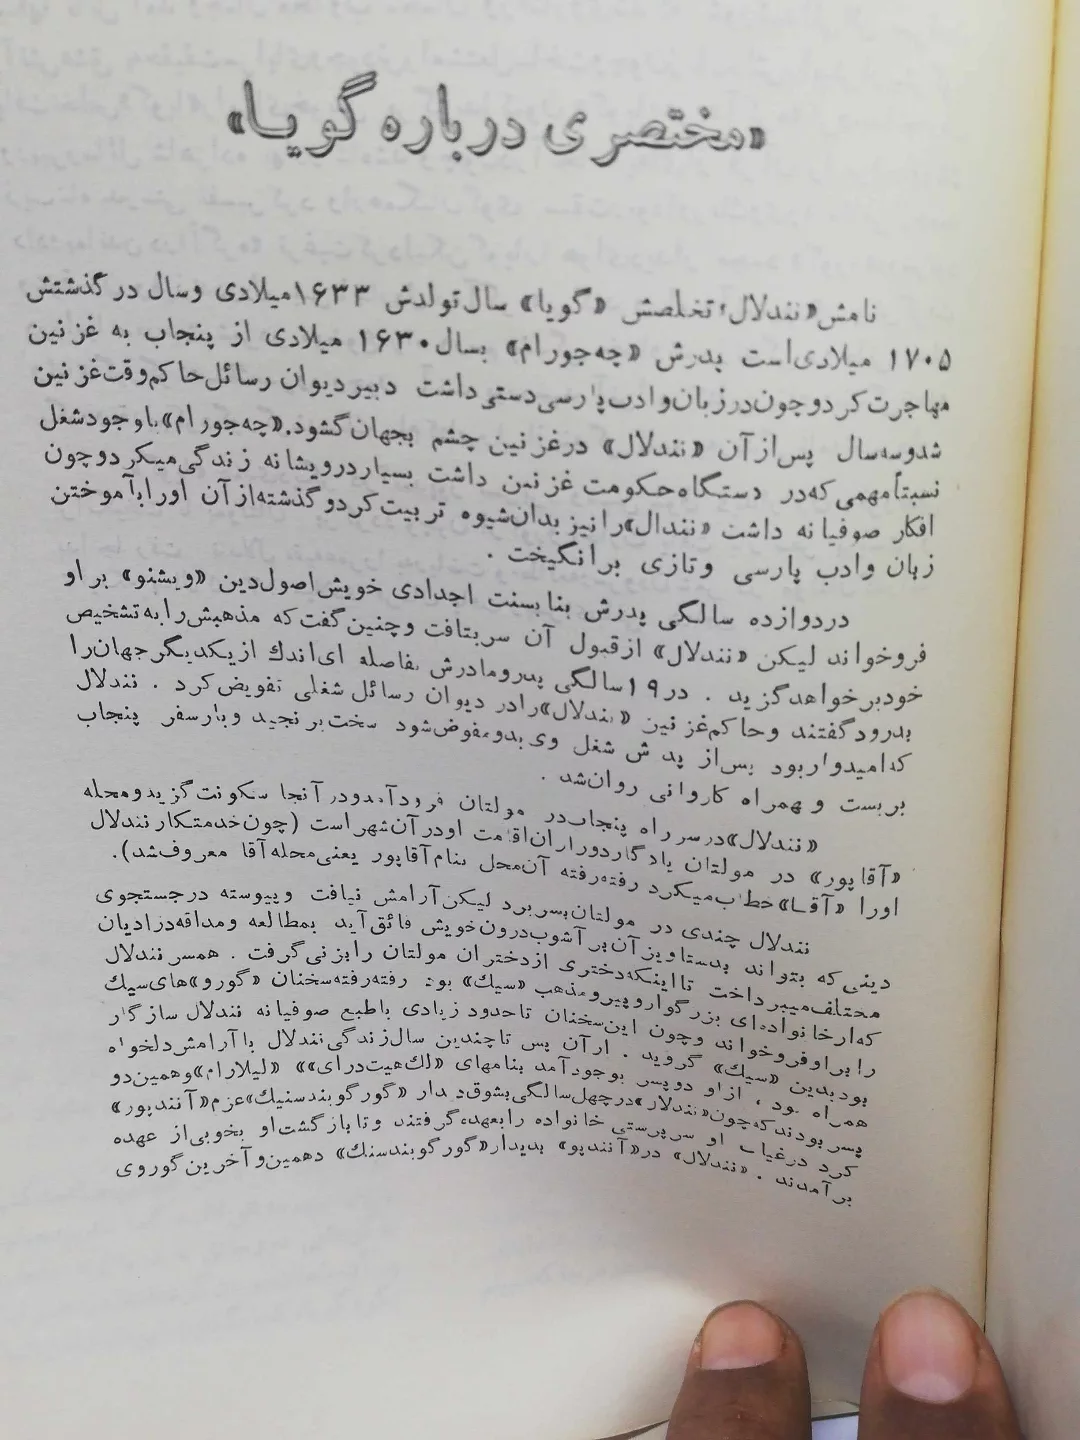 «مختصری درباره گویا»
نامش «نندلال» تخلصش «گویا» سال تولدش ۱۶۳۳ میلادی وسال در گذشتش
۱۷۰۵ میلادی است پدرش «چه جورام» بسال ۱۶۳۰ میلادی از پنجاب به غزنین
مهاجرت کرد و چون در زبان و ادب پارسی دستی داشت دبیر دیوان رسائل حاکم وقت غزنین
شد و سه سال پس از آن «نندلال» در غزنین چشم بجهان گشود. «چه جورام» باوجود شغل
نسبتاً مهمی که در دستگاه حکومت غزنین داشت بسیار درویشانه زندگی میکرد و چون
افکار صوفیانه داشت «نندال» را نیز بدان شیوه تربیت کرد و گذشته از آن او را بآموختن
زبان و ادب پارسی وتازی برانگیخت .
در دوازده سالگی پدرش بنا بسنت اجدادی خویش اصول دین «ویشنو» بر او
فروخواند لیکن «نندلال» از قبول آن سر بتافت و چنین گفت که مذهبش را به تشخیص
خود بر خواهد گزید . در ۱۹ سالگی پدر و مادرش بفاصله ای اندك از یکدیگر جهان را
بدرود گفتند و حاکم غزنین «نندلال» را در دیوان رسائل شغلی تفویض کرد . نندلال
که امیدوار بود پس از پدرش شغل وی بدو مفوض شود سخت برنجید و بار سفر پنجاب
بر بست و همراه کاروانی روان شد .
«نندلال» در سر راه پنجاب در مولتان فرود آمد و در آنجا سکونت گزید و محله
«آقاپور» در مولتان یادگار دوران اقامت او در آن شهر است (چون خدمتکار نندلال
او را «آقا» خطاب میکرد رفته رفته آن محل بنام آقاپور یعنی محله آقا معروف شد).
نندلال چندی در مولتان بسر برد لیکن آرامش نیافت و پیوسته در جستجوی
دینی که بتواند بدستاویز آن بر آشوب درون خویش فائق آید بمطالعه ومداقه در ادیان
مختلف میپرداخت تا اینکه دختری از دختران مولتان را بزنی گرفت . همسر نندلال
که از خانواده ای بزرگوار و پیرو مذهب «سیك» بود رفته رفته سخنان «گورو» های سیك
را بر او فروخواند و چون این سخنان تا حدود زیادی با طبع صوفیانه نندلال سازگار
بود بدین «سیك» گروید . از آن پس تا چندین سال زندگی نندلال با آرامش دلخواه
همراه بود ، از او دو پسر بوجود آمد بنامهای «لك هیت درای» «لیلارام» و همین دو
پسر بودند که چون «نندلال» در چهل سالگی بشوق دیدار «گورگوبند سنیك» عزم «آنندپور»
کرد در غیاب او سرپرستی خانواده را بعهده گرفتند و تا باز گشت او بخوبی از عهده
بر آمدند . «نندلال» در «آنندپو» بدیدار «گورگوبند سنك» دهمین و آخرین گوروی